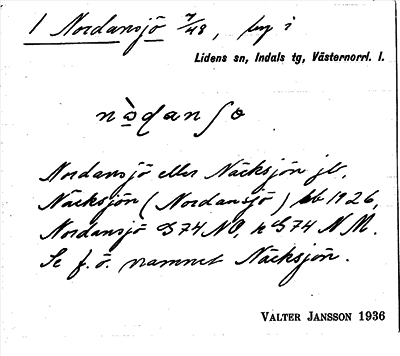 1 Nordansjö 7/48, by i
Lidens sn, Indals tg, Västernorrl. l.
Nordansjö eller Näcksjön jb,
Näcksjön (Nordansjö) kb 1926,
Nordansjö G74 NO, k G74 NM.
Se f. ö. namnet Näcksjön.
VALTER JANSSON 1936